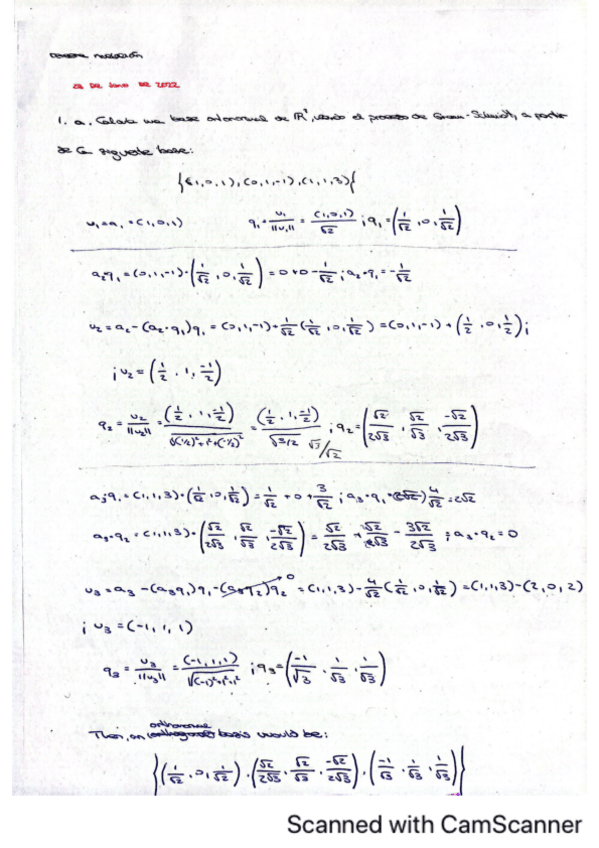 28 DE JUNIO DE 2022
1. a. Calcula una base ortonormal de ℝ³, usando el proceso de Gram-Schmidt, a partir
de la siguiente base:
{(1,0,1),(0,1,-1),(1,1,3)}
u₁=a₁=(1,0,1) q₁=u₁/||u₁||=(1,0,1)/√2; q₁=(1/√2,0,1/√2)
a₂q₁=(0,1,-1)·(1/√2,0,1/√2)=0+0-1/√2; a₂·q₁=-1/√2
u₂=a₂-(a₂·q₁)q₁=(0,1,-1)+1/√2(1/√2,0,1/√2)=(0,1,-1)+(1/2,0,1/2);
; u₂=(1/2,1,-1/2)
q₂=u₂/||u₂||=(1/2,1,-1/2)/√((1/2)²+1²+(-1/2)²)=(1/2,1,-1/2)/√3/2 √3/√2; q₂=(√2/2√3,√2/√3,-√2/2√3)
a₃q₁=(1,1,3)·(1/√2,0,1/√2)=1/√2+0+3/√2; a₃·q₁=4/√2=2√2
a₃·q₂=(1,1,3)·(√2/2√3,√2/√3,-√2/2√3)=√2/2√3+√2/√3-3√2/2√3; a₃·q₂=0
u₃=a₃-(a₃q₁)q₁-(a₃q₂)q₂ 0=(1,1,3)-4/√2(1/√2,0,1/√2)=(1,1,3)-(2,0,2)
; u₃=(-1,1,1)
q₃=u₃/||u₃||=(-1,1,1)/√((-1)²+1²+1²); q₃=(-1/√3,1/√3,1/√3)
orthonormal
Then, an basis would be:
{(1/√2,0,1/√2),(√2/2√3,√2/√3,-√2/2√3),(-1/√3,1/√3,1/√3)}
Scanned with CamScanner